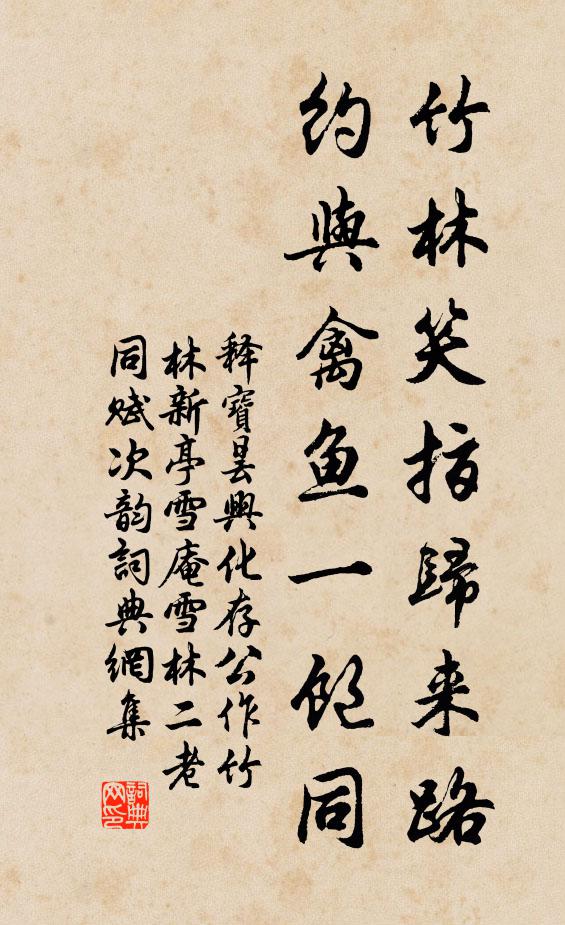 竹林笑指歸来路
約與禽魚一飽同
释寶曇興化存公作竹
林新亭雪庵雪林二老
同赋次韵詞典網集
詞典
网印